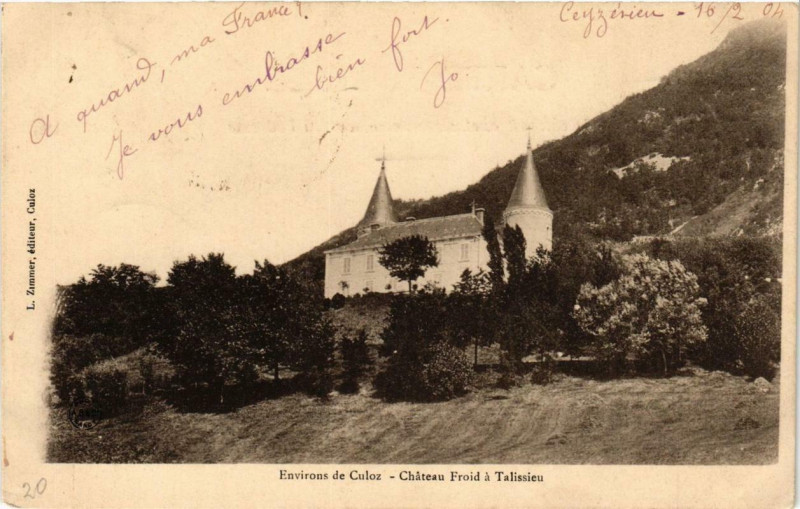 Ceyzérieu - 16/2 04
A quand, ma France?
Je vous embrasse
bien fort.
Jo.
L. Zimmer, éditeur, Culoz
Environs de Culoz - Château Froid à Talissieu
20